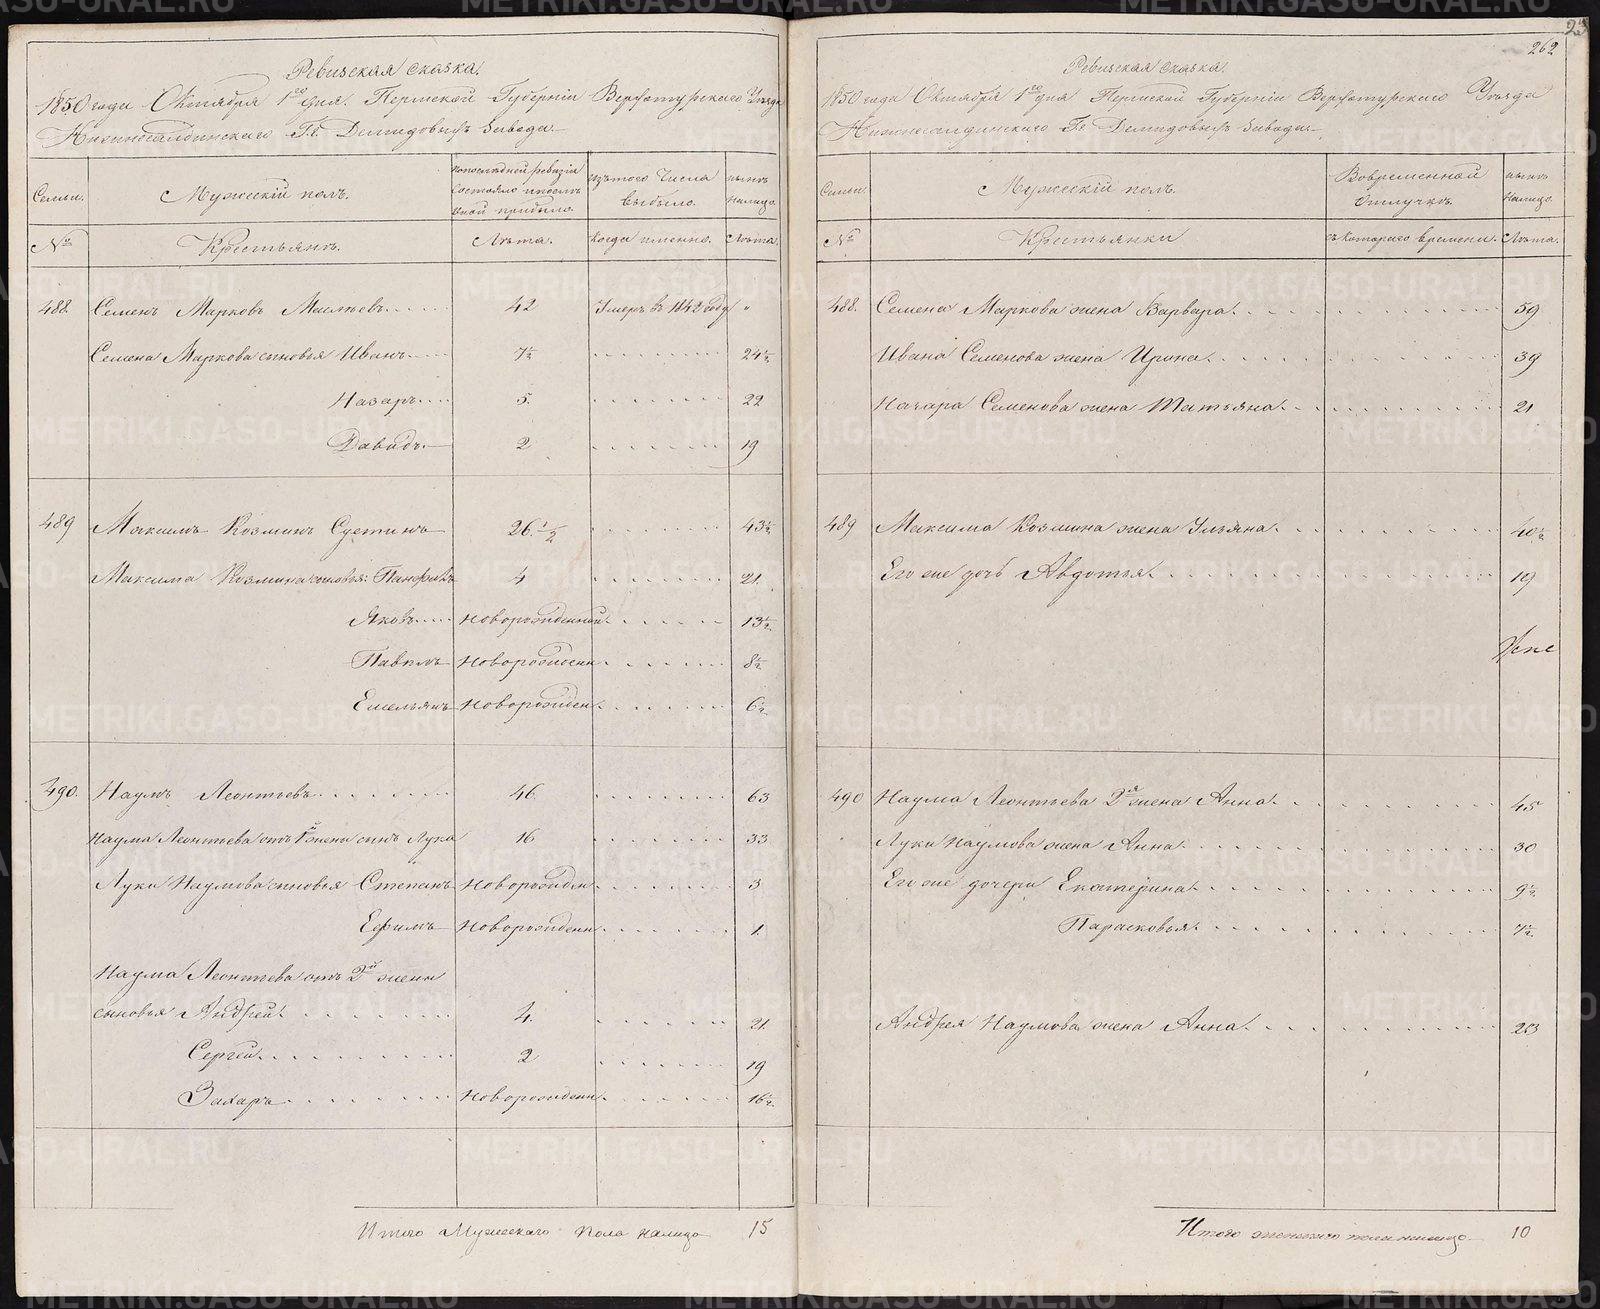 262
Ревизская сказка.
1850 года Октября 1го дня. Пермской Губерніи Верхотурскаго Уѣзда
Нижнесалдинскаго Гг. Демидовыхъ Завода.
Семьи. Мужескій полъ. По последней ревизіи состояло и после оной прибыло. Изъ того числа выбыло. нынѣ налицо.
№ Крестьянъ. Лѣта. Когда именно. Лѣта.
488. Семенъ Марковъ 42 Умеръ въ 1842 году "
Семена Маркова сыновья Иванъ 7½ 24½
Назаръ 5. 22
Давидъ. 2 19
489 Максимъ Козминъ Сустинъ 26.½ 43½
Максима Козмина сыновья: Панфилъ 4 21.
Яковъ Новорожденный 13½
Павелъ Новорожденн 8½
Емельянъ Новорожден 6½
490. Наумъ Леонтьевъ 46 63
Наума Леонтьева отъ 1й жены сынъ Лука 16 33
Луки Наумова сыновья Степанъ Новорожден 3
Ефимъ Новорожденн 1.
Наума Леонтьева отъ 2й жены
сыновья Андрей 4. 21.
Сергей 2 19
Захаръ Новорожденн 16½
Итого Мужескаго пола налицо 15
Ревизская сказка.
1850 года Октября 1го дня Пермской Губерніи Верхотурскаго Уѣзда
Нижнесалдинскаго Гг. Демидовыхъ Завода.
Семьи. Мужескій полъ. Во временной отлучкѣ. нынѣ налицо.
№ Крестьянки съ котораго времени. Лѣта.
488. Семена Маркова жена Варвара. 59
Ивана Семенова жена Ирина. 39
Назара Семенова жена Татьяна. 21
489 Максима Козмина жена Ульяна. 40½
Его же дочь Авдотья. 19
490 Наума Леонтьева 2я жена Анна. 45
Луки Наумова жена Анна. 30
Его же дочери Екатерина. 9½
Парасковья. 7½
Андрея Наумова жена Анна. 23
Итого женскаго пола налицо 10
METRIKI.GASO-URAL.RU